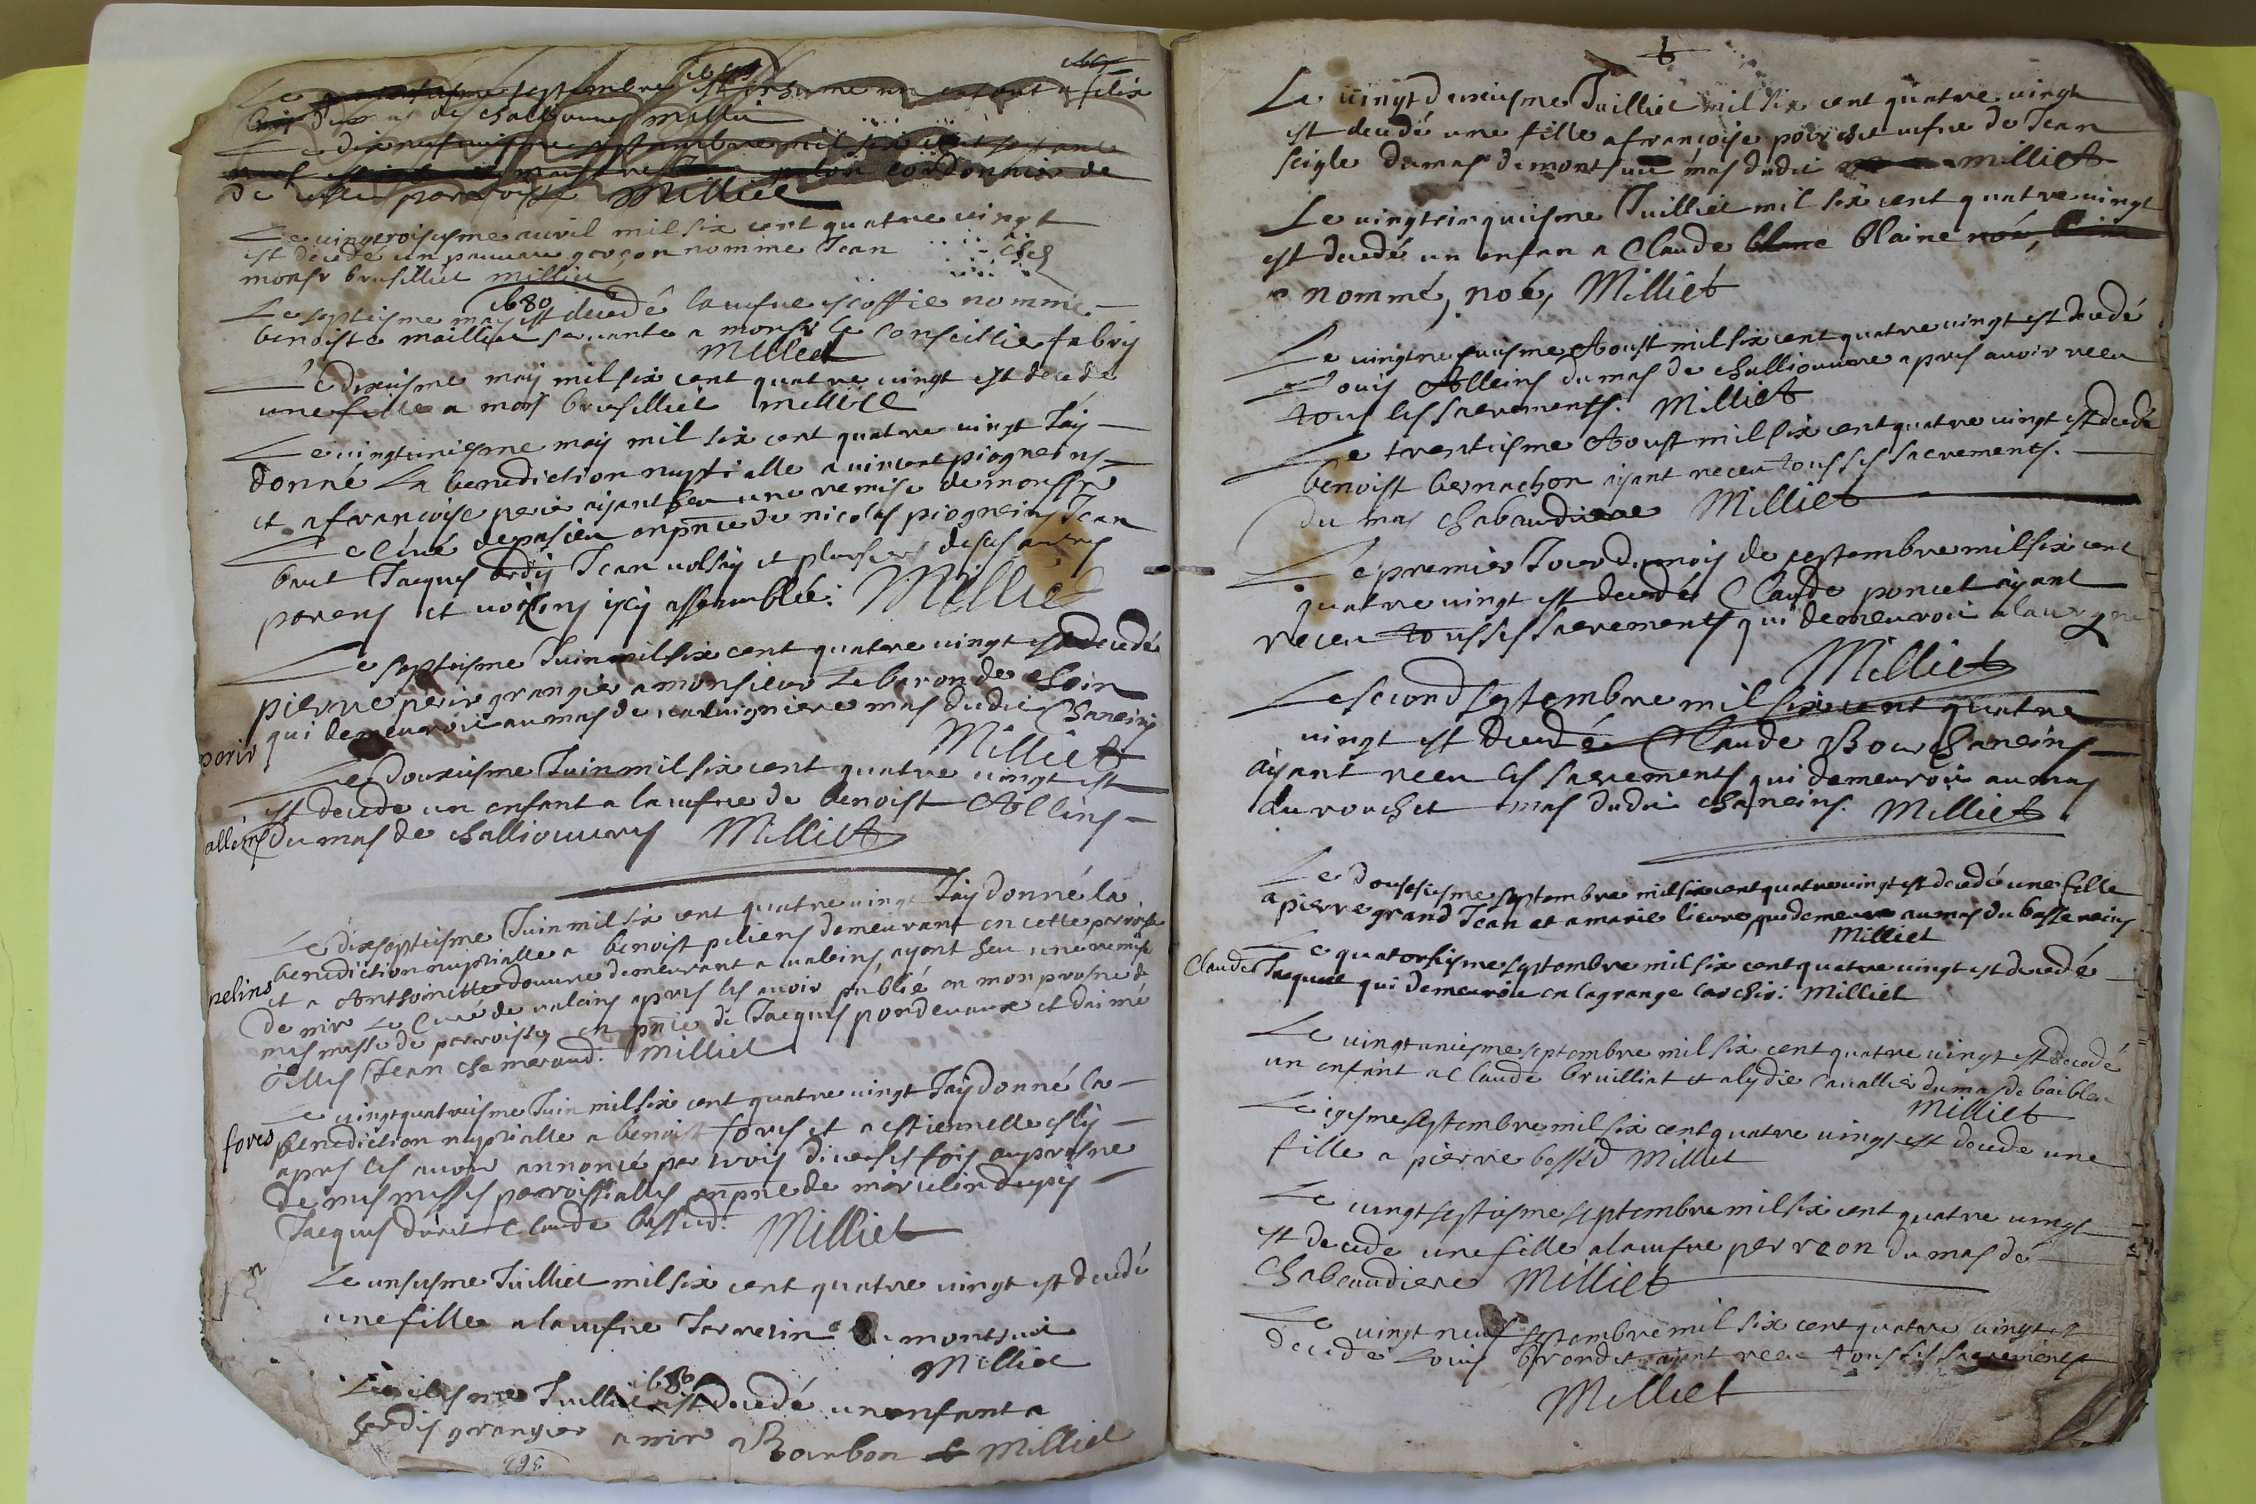 Le septembre est inhumé un enfant a felix
du mas de challiouures Milliet
Le dixneufuiesme septembre mil six cent septante
neuf cordonnier de
de cette parroisse Milliet
Le vingtroisiesme auril mil six cent quatre vingt
est decedé un pauure garçon nommé Jean chez
monsr brusilliet Milliet
Le septiesme may 1680 est decedé la uefue escoffie nommée
benoiste mailliat seruante a monsr le conseillie fabry
Milliet
Le dixiesme may mil six cent quatre vingt est decedé
une fille a mons brusilliet Milliet
Le vingtuniesme may mil six cent quatre vingt J'ay
donné La benediction nuptialle a uincent piogneins
et a françoise perie aiyant heu une remise de monssr
Le Curé depasieu en pnce de nicolas piogneins Jean
brut Jacques ardy Jean uolsay et plusieurs de ses autres
parens et uoisins icy assemblée: Milliet
Le septiesme Juin mil six cent quatre vingt est decedé
pierre perir grangier a monsieur Le baron de esloin
qui demeuroit au mas de mas dudit Chaneins
perir
Milliet
Le Douxiesme Juin mil six cent quatre vingt est
est decede un enfant a la uefue de benoist Alleins
alleins du mas de challiouures Milliet
Le dixseptiesme Juin mil six cent quatre vingt J'ay donné la
benediction nuptialle a benoist peliens demeurant en cette parroisse
pelins et a Anthoinette douure demeurant a ualeins ayant heu une remise
de mr Le Curé de ualeins apres les auoir publié en mon prosne de
mes messe de parroisse en pnce de Jacques pordeuaux et daimé
Jean chameraud: Milliet
Le vingtquatriesme Juin mil six cent quatre vingt J'ay donné la
fores benediction nuptialle a benoist fores et a estiennette esly
apres les auoir annoncé par trois diuerses fois au prosne
de mes messes parroissialles en pnce de marcelin dupis
Jacques durit Claude bessied: Milliet
Le unsiesme Juilliet mil six cent quatre vingt est decedé
une fille a la uefue Jarrerin de montsuit
Milliet
Juilliet 1680 est decedé un enfant a
grangier a mr Bourbon Milliet
363
Le vingtdeuxiesme Juilliet mil six cent quatre vingt
est decedé une fille a françoise poirchet uefue de Jean
seigle du mas de mas dudit Milliet
Le vingtcinquiesme Juilliet mil six cent quatre vingt
est decedé un enfan a Claude blaine
nommé, noé, Milliet
Le vingtneufuiesme Aoust mil six cent quatre vingt est decedé
Louis Alleins du mas de challiouure apres auoir receu
tous les sacrements. Milliet
Le trentiesme Aoust mil six cent quatre vingt est decedé
benoist bernachon aiyant receu tous ses sacrements.
du mas chabaudiere Milliet
Le premier Jour du mois de septembre mil six cent
quatre vingt est decedé Claude poncet aiyant
receu tous ses sacrements qui demeuroit
Milliet
Le second septembre mil six cent quatre
vingt est decedé Claude Bourchaneins
aiyant receu les sacrements qui demeuroit au mas
du rouchet mas dudit chaneins. Milliet
Le dousesiesme septembre mil six cent quatre vingt est decedé une fille
a pierre grand Jean et a marie lieure qui demeure au mas du bassereins
Milliet
Le quatorsiesme septembre mil six cent quatre vingt est decedé
Claude Jaquet qui demeuroit en la grange carchir: Milliet
Le vingtuniesme septembre mil six cent quatre vingt est decedé
un enfant a Claude bruilliat et a lydie cauallie du mas de baibleu
Milliet
Le septembre mil six cent quatre vingt est decede une
fille a pierre bessied Milliet
Le vingtseptiesme septembre mil six cent quatre vingt
est decede une fille a la uefue perreon du mas de
Chabaudiere Milliet
Le vingt neuf septembre mil six cent quatre vingt est
decede Louis ayant receu tous ses sacrements
Milliet